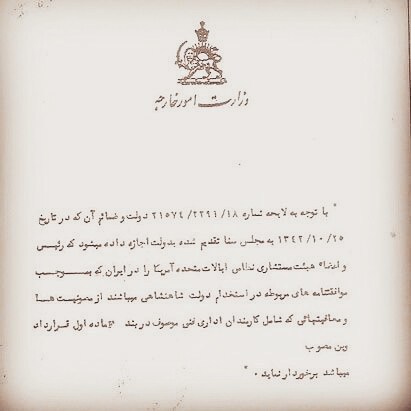 وزارت امور خارجه
" با توجه به لایحه شماره ۱۸/۲۲۹۱/۲۱۵۷۴ دولت و ضمائم آن که در تاریخ
۱۳۴۲/۱۰/۲۵ به مجلس سنا تقدیم شده بدولت اجازه داده میشود که رئیس
و اعضاء هیئت مستشاری نظامی ایالات متحده آمریکا را در ایران که بموجب
موافقتنامه های مربوطه در استخدام دولت شاهنشاهی میباشند از مصونیت ها
و معافیتهائی که شامل کارمندان اداری و فنی موصوف در بند ماده اول قرارداد
وین مصوب
میباشد برخوردار نماید . "